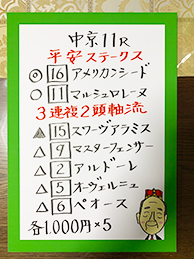 中京11R
平安ステークス
◎ 16 アメリカンシード
○ 11 マルシュロレーヌ
3連複2頭軸流
▲ 15 スワーヴアラミス
△ 9 マスターフェンサー
△ 2 アルドーレ
△ 5 オーヴェルニュ
△ 6 ペオース
各1,000円×5